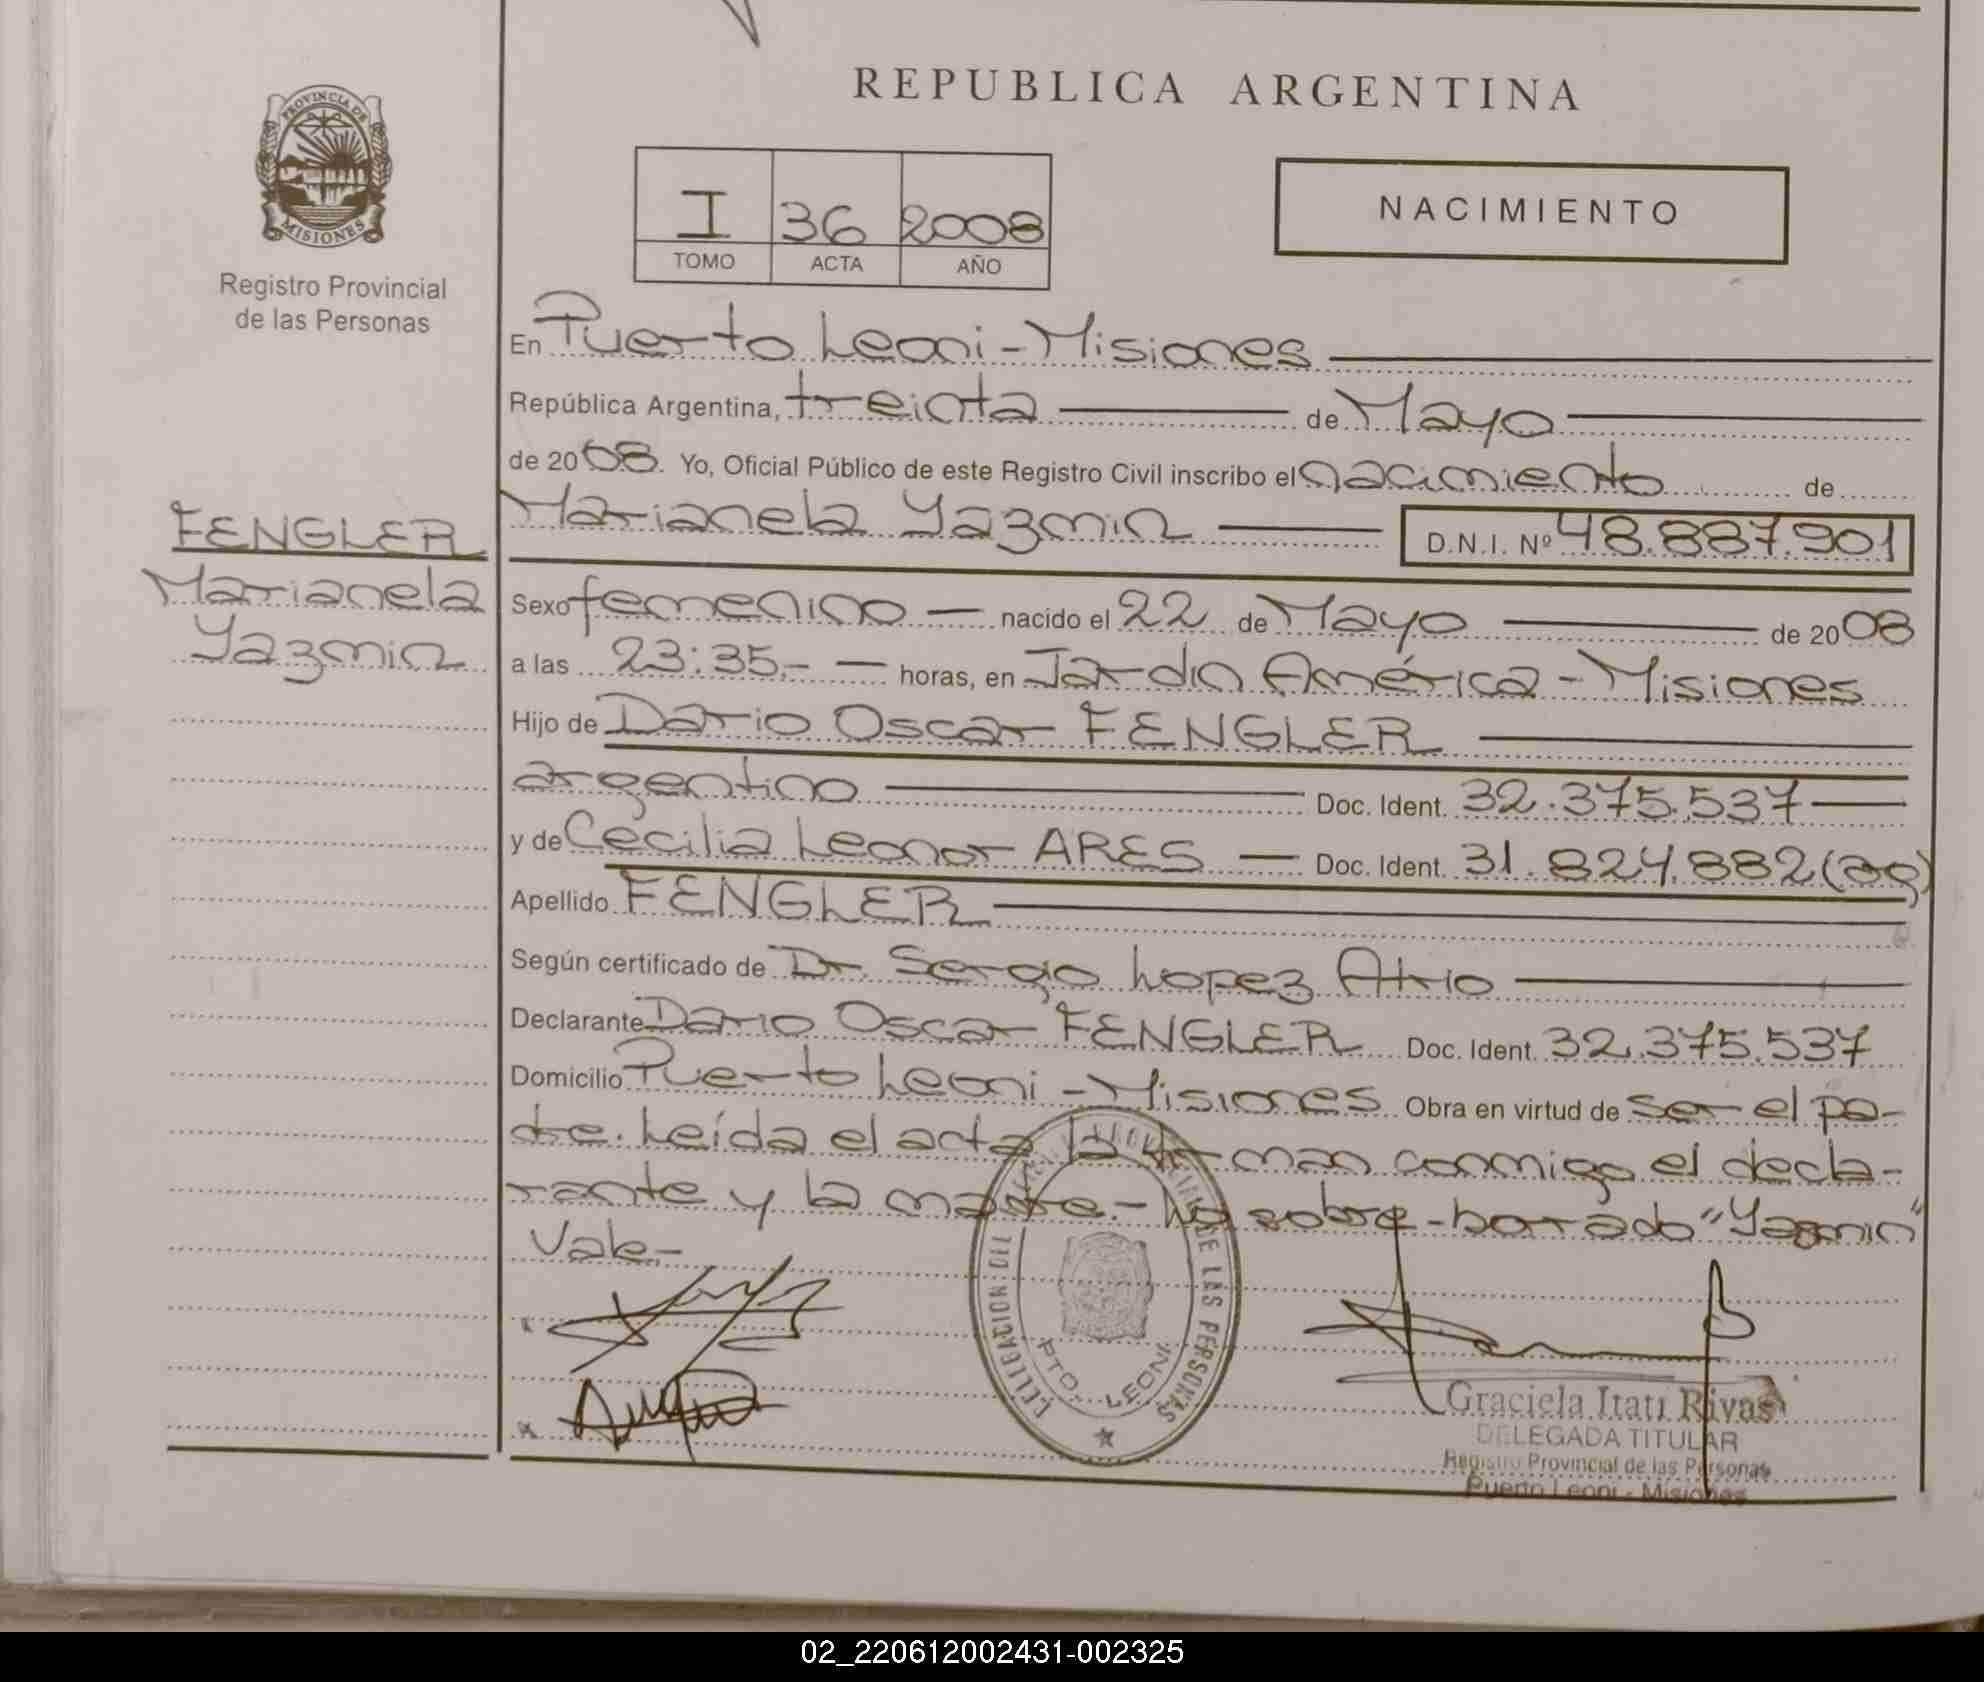 REPUBLICA ARGENTINA
PROVINCIA DE
MISIONES
Registro Provincial
de las Personas
I 36 2008
TOMO ACTA AÑO
NACIMIENTO
En Puerto Leoni - Misiones
República Argentina, treinta de Mayo
de 2008. Yo, Oficial Público de este Registro Civil inscribo el nacimiento de
FENGLER
Marianela
Yazmin
Marianela Yazmin D.N.I. Nº 48.887.901
Sexo femenino nacido el 22 de Mayo de 2008
a las 23:35.- horas, en Jardin América - Misiones
Hijo de Dario Oscar FENGLER
argentino Doc. Ident. 32.375.537
y de Cecilia Leonor ARES Doc. Ident. 31.824.882 (ag)
Apellido FENGLER
Según certificado de Dr. Sergio Lopez Atrio
Declarante Dario Oscar FENGLER Doc. Ident. 32.375.537
Domicilio Puerto Leoni - Misiones Obra en virtud de ser el pa-
dre. Leída el acta la firman conmigo el decla-
rante y la madre.- sobre-borrado "Yazmin"
Vale-
DELEGACION DEL DE LAS PERSONAS
PTO. LEONI
Graciela Itati Rivas
DELEGADA TITULAR
Registro Provincial de las Personas
Puerto Leoni - Misiones
02_220612002431-002325